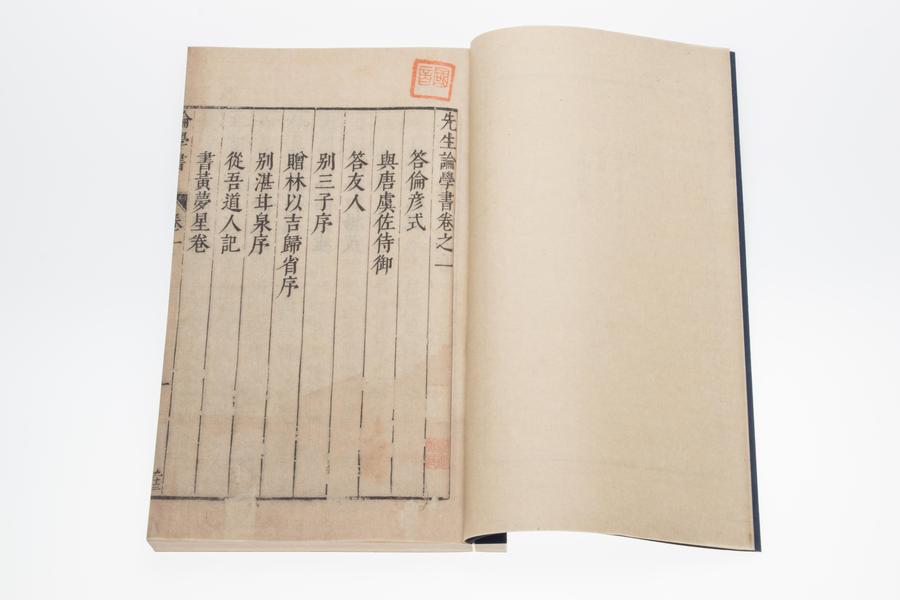 先生論學書卷之一
答倫彦式
與唐虞佐侍御
答友人
别三子序
贈林以吉歸省序
别湛甘泉序
從吾道人記
書黃夢星卷
論學書
卷一
一